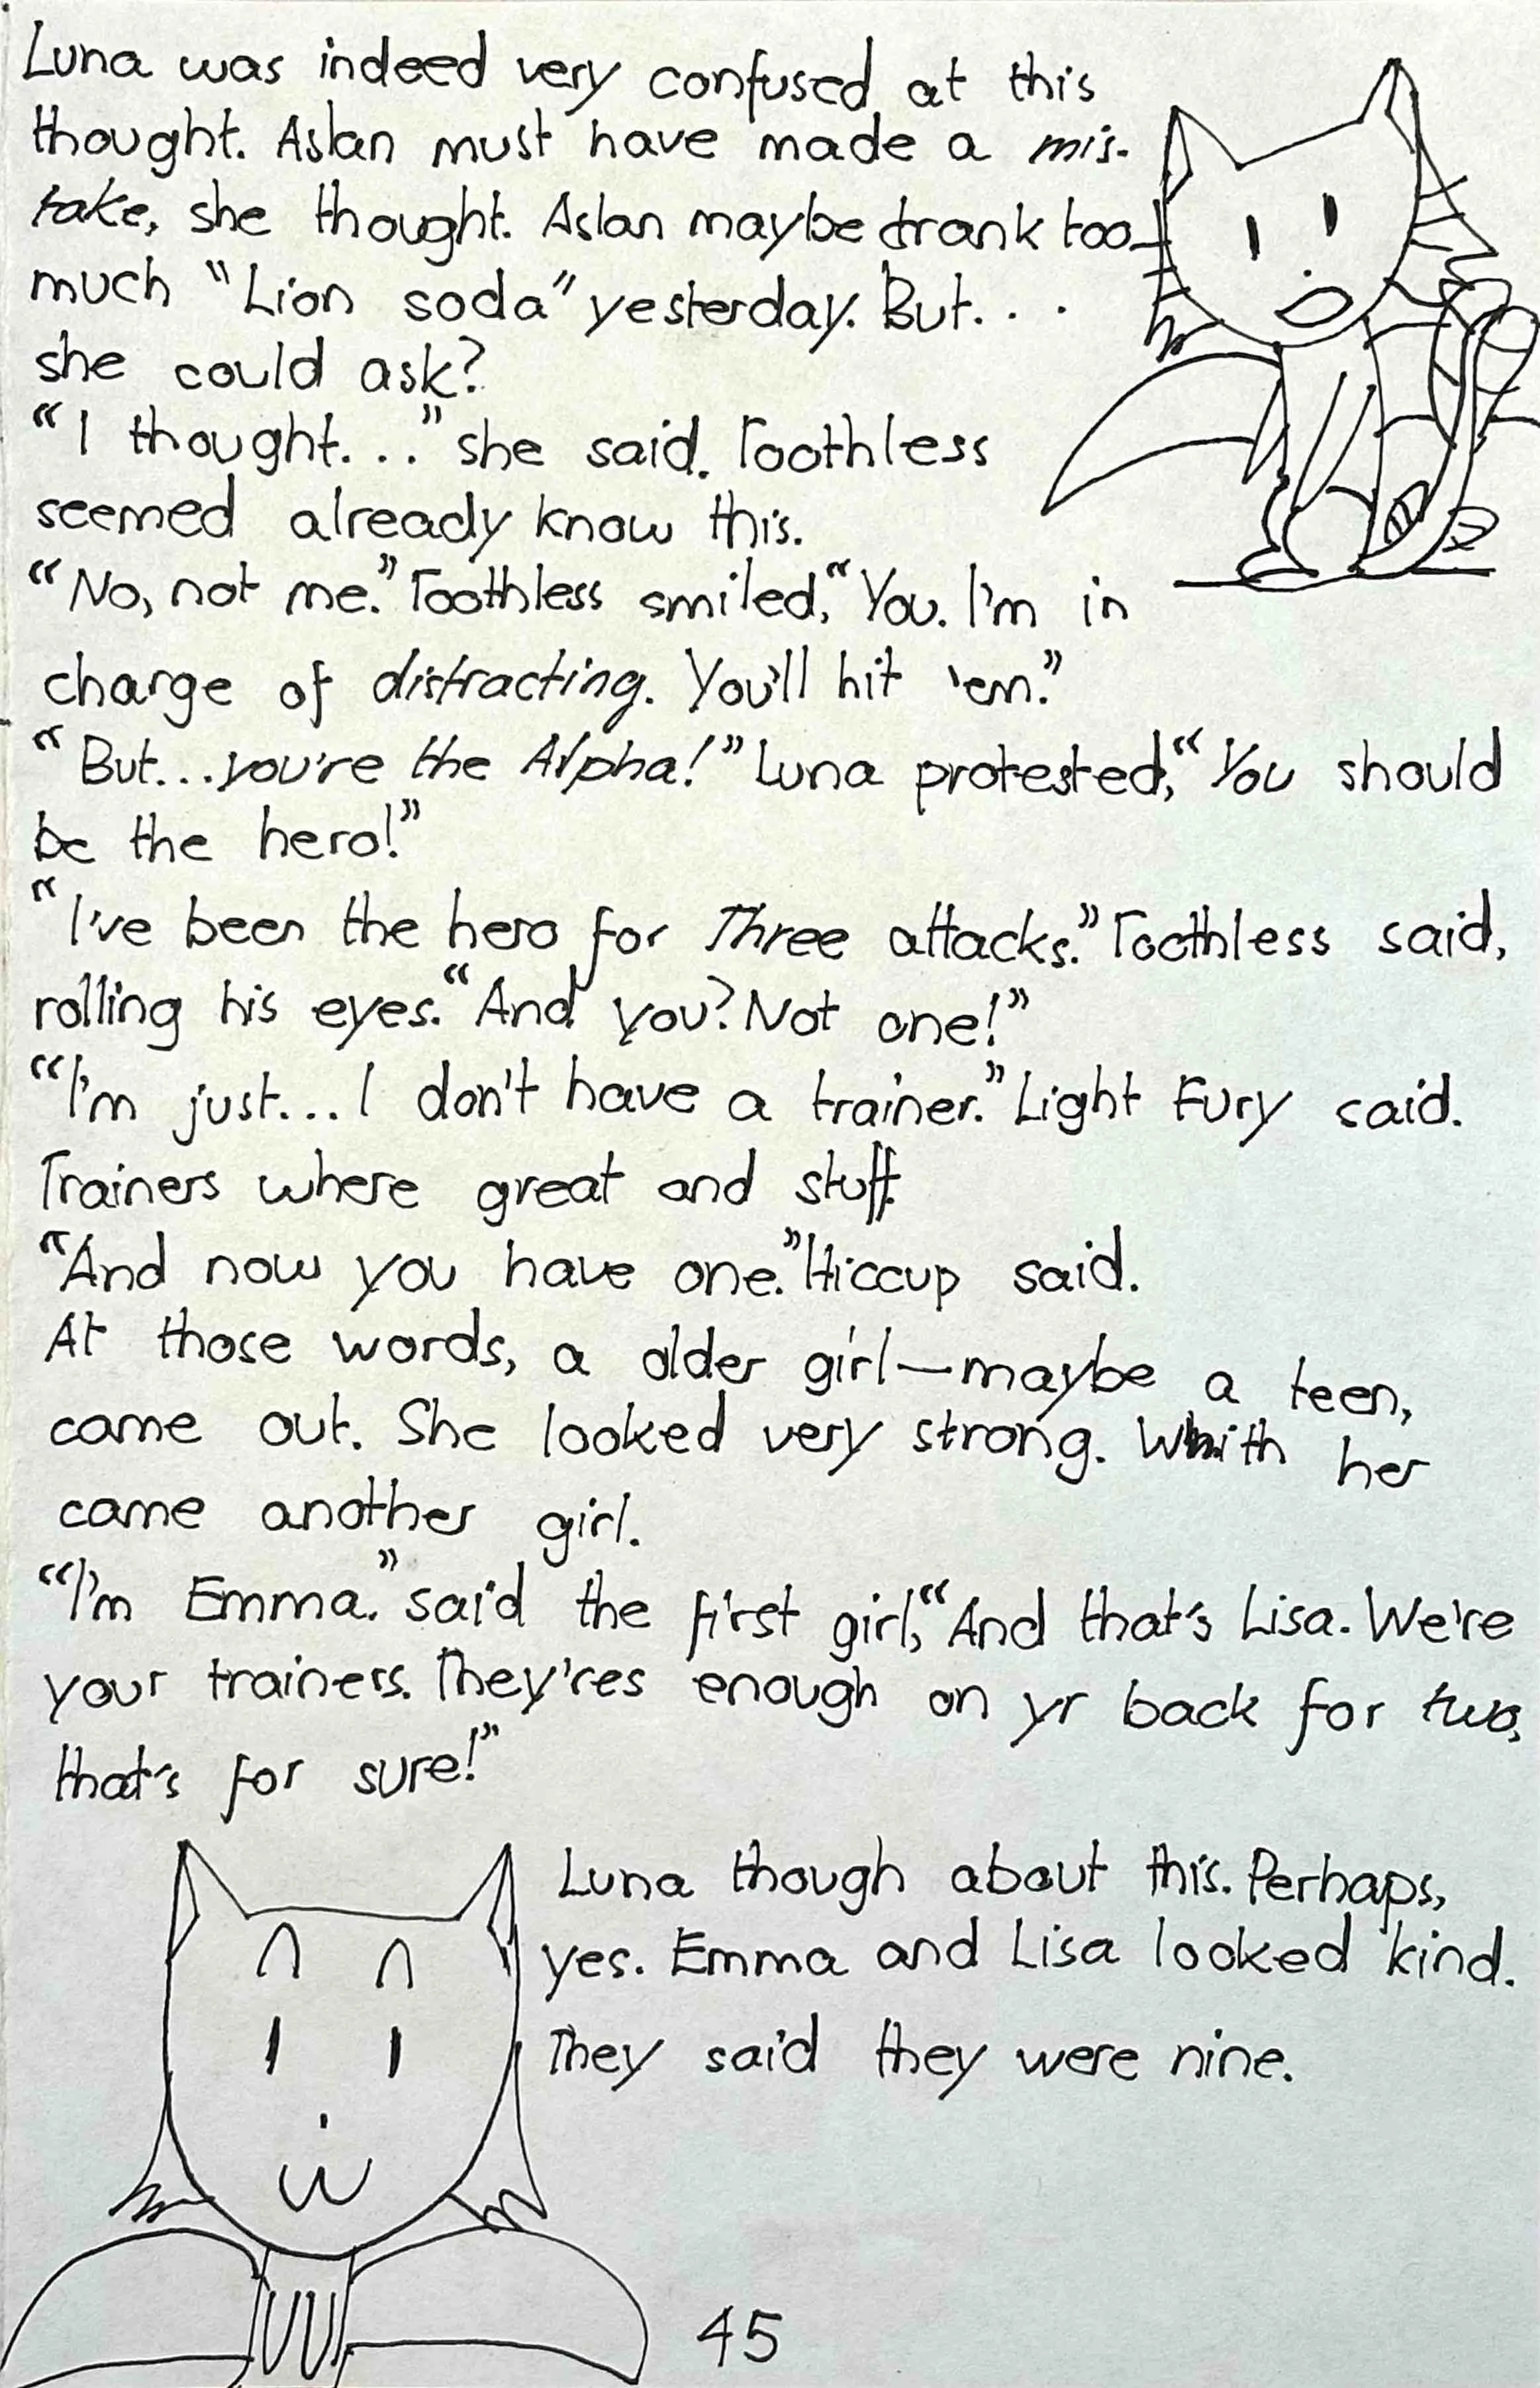 Luna was indeed very confused at this
thought. Aslan must have made a mis-
take, she thought. Aslan maybe drank too
much "Lion soda" yesterday. But. . .
she could ask?
"I thought. . ." she said. Toothless
seemed already know this.
"No, not me." Toothless smiled, "You. I'm in
charge of distracting. You'll hit 'em."
"But. . . you're the Alpha!" Luna protested, "You should
be the hero!"
"I've been the hero for Three attacks." Toothless said,
rolling his eyes. "And you? Not one!"
"I'm just. . . I don't have a trainer." Light Fury said.
Trainers where great and stuff.
"And now you have one." Hiccup said.
At those words, a older girl—maybe a teen,
came out. She looked very strong. Whith her
came another girl.
"I'm Emma." said the first girl, "And that's Lisa. We're
your trainers. They'res enough on yr back for two,
that's for sure!"
Luna though about this. Perhaps,
yes. Emma and Lisa looked kind.
They said they were nine.
45